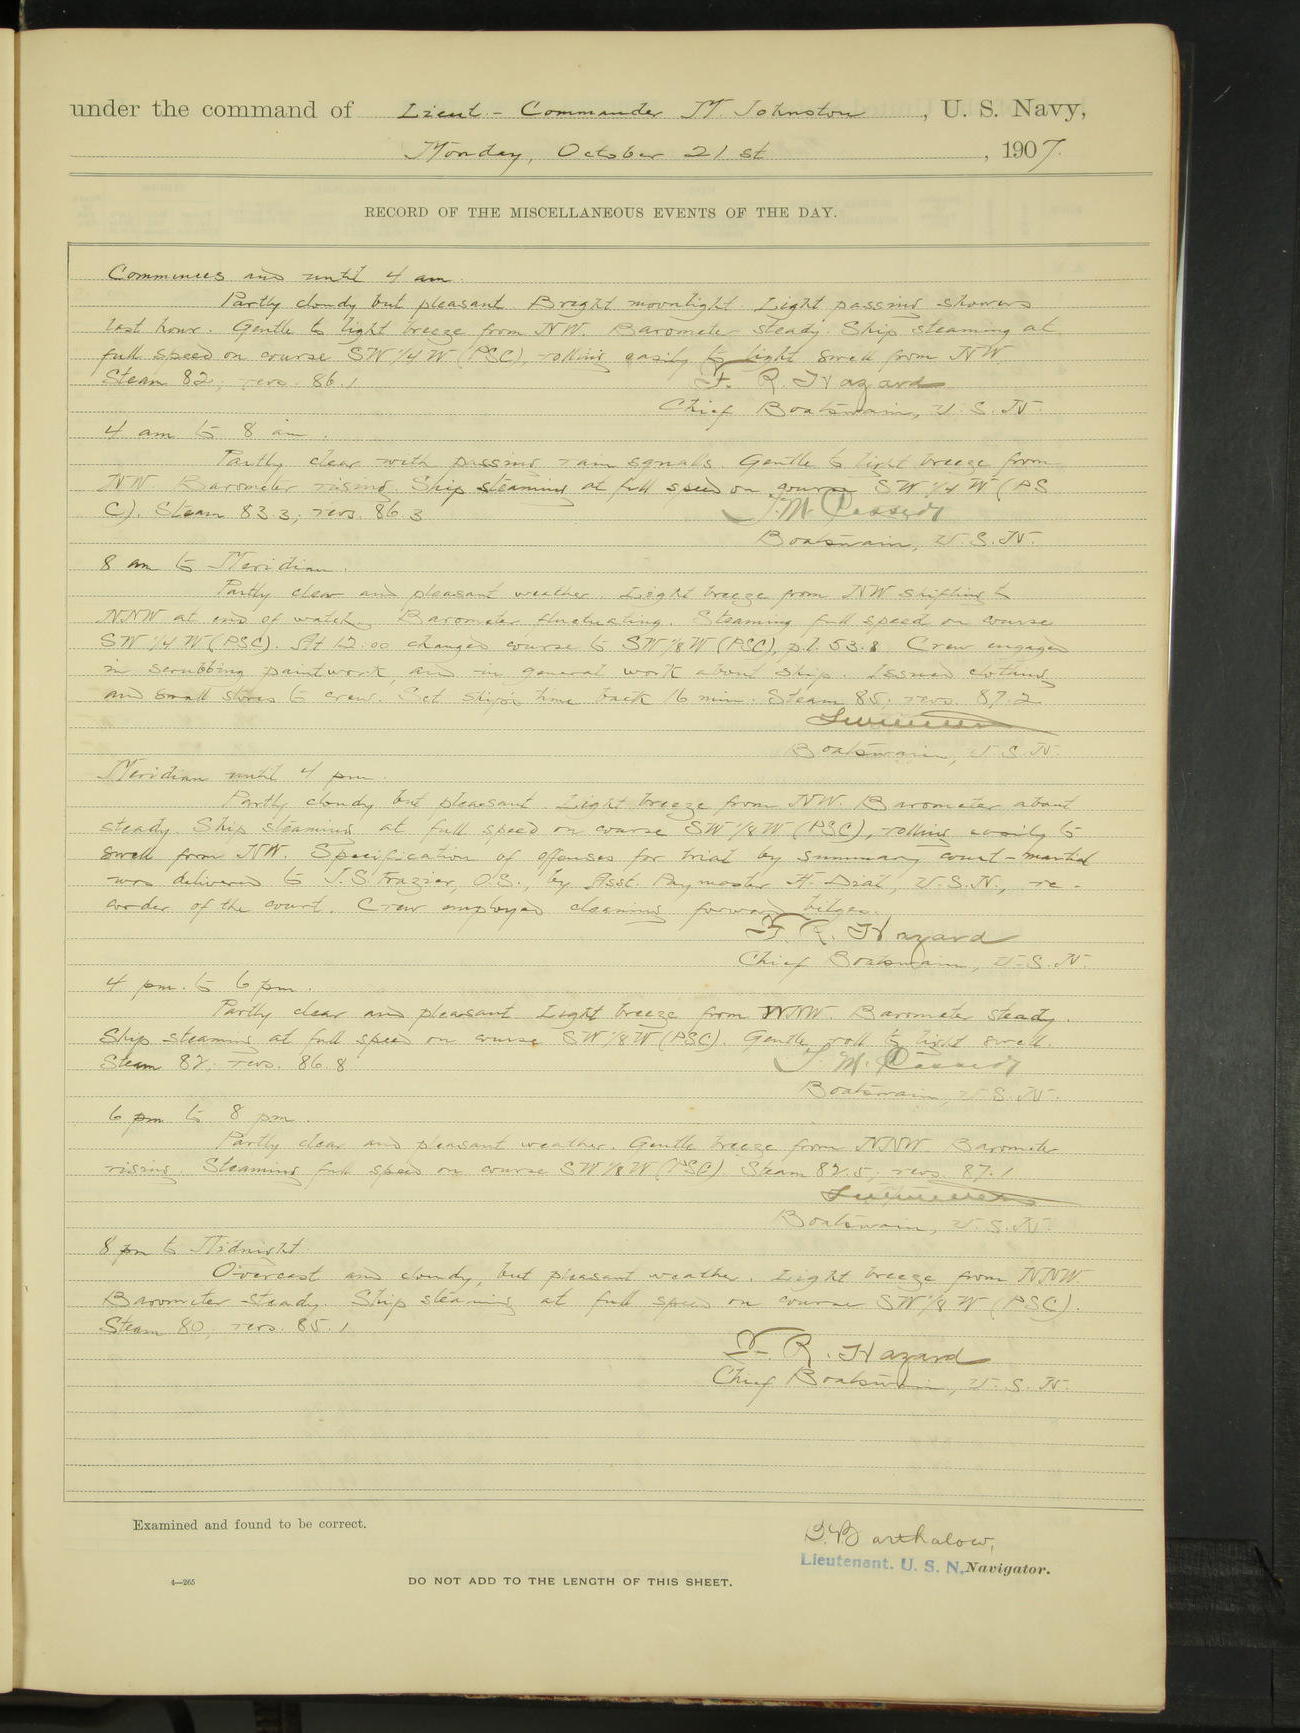 under the command of Lieut-Commander M. Johnston, U. S. Navy,
Monday, October 21st, 1907.
RECORD OF THE MISCELLANEOUS EVENTS OF THE DAY.
Commences and until 4 am.
Partly cloudy but pleasant. Bright moonlight. Light passing showers
last hour. Gentle to light breeze from NW. Barometer steady. Ship steaming at
full speed on course SW 1/4 W (PSC), rolling easily to light swell from NW.
Steam 82, revs. 86.1
F. R. Hazard
Chief Boatswain, U. S. N.
4 am to 8 am.
Partly clear with passing rain squalls. Gentle to light breeze from
NW. Barometer rising. Ship steaming at full speed on course SW 1/4 W (PS
C). Steam 83.3; revs. 86.3
J. M. Cassedy
Boatswain, U. S. N.
8 am to Meridian.
Partly clear and pleasant weather. Light breeze from NW shifting to
NNW at end of watch. Barometer fluctuating. Steaming full speed on course
SW 1/4 W (PSC). At 12:00 changed course to SW 1/8 W (PSC), p.l. 53.8 Crew engaged
in scrubbing paintwork, and in general work about ship. Issued clothing
and small stores to crew. Set ship's time back 16 min. Steam 85; revs. 87.2
Boatswain, U. S. N.
Meridian until 4 pm.
Partly cloudy but pleasant. Light breeze from NW. Barometer about
steady. Ship steaming at full speed on course SW 1/8 W (PSC), rolling easily to
swell from NW. Specification of offenses for trial by summary court-martial
was delivered to J. S. Frazier, O.S., by Asst. Paymaster H. Dial, U.S.N., re-
corder of the court. Crew employed cleaning forward bilges.
F. R. Hazard
Chief Boatswain, U. S. N.
4 pm. to 6 pm.
Partly clear and pleasant. Light breeze from NNW. Barometer steady.
Ship steaming at full speed on course SW 1/8 W (PSC). Gentle roll to light swell.
Steam 82; revs. 86.8
J. M. Cassedy
Boatswain, U. S. N.
6 pm to 8 pm.
Partly clear and pleasant weather. Gentle breeze from NNW. Barometer
rising. Steaming full speed on course SW 1/8 W (PSC). Steam 82.5; revs. 87.1
Boatswain, U. S. N.
8 pm to Midnight
Overcast and cloudy, but pleasant weather. Light breeze from NNW.
Barometer steady. Ship steaming at full speed on course SW 1/8 W (PSC).
Steam 80; revs. 85.1
F. R. Hazard
Chief Boatswain, U. S. N.
Examined and found to be correct.
Barthalow,
Lieutenant. U. S. N., Navigator.
4—265
DO NOT ADD TO THE LENGTH OF THIS SHEET.